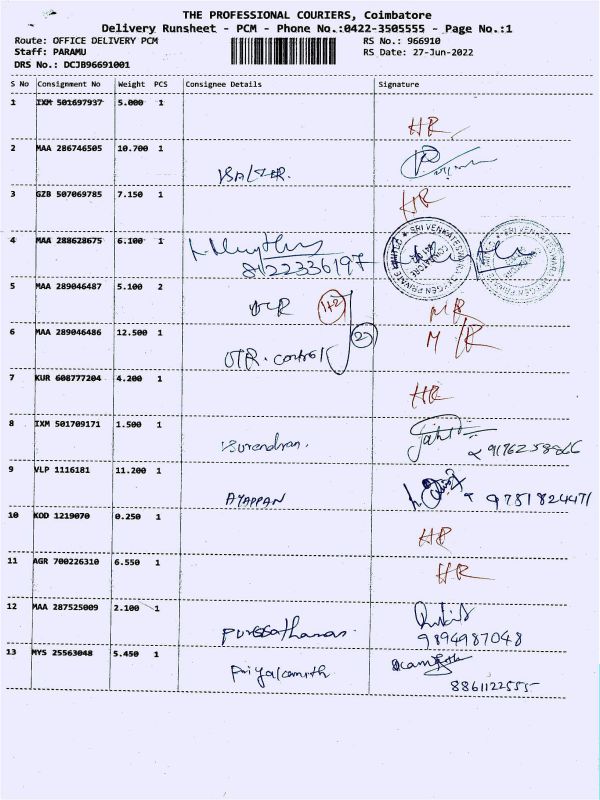 THE PROFESSIONAL COURIERS, Coimbatore
Delivery Runsheet - PCM - Phone No.:0422-3505555 - Page No.:1
Route: OFFICE DELIVERY PCM RS No.: 966910
Staff: PARAMU RS Date: 27-Jun-2022
DRS No.: DCJB96691001
S No Consignment No Weight PCS Consignee Details Signature
1 IXM 501697937 5.000 1
HR
2 MAA 286746505 10.700 1
3 GZB 507069785 7.150 1
HR
4 MAA 288628675 6.100 1
8122336197
5 MAA 289046487 5.100 2
1+2
MR
6 MAA 289046486 12.500 1
2
OTR. control MR
7 KUR 608777204 4.200 1
HR
8 IXM 501709171 1.500 1
Surendran.
9176258866
9 VLP 1116181 11.200 1
AYAPPAN 9781824471
10 KOD 1219070 0.250 1
HR
11 AGR 700226310 6.550 1
HR
12 MAA 287525009 2.100 1
9894987048
13 MYS 25563048 5.450 1
8861122555